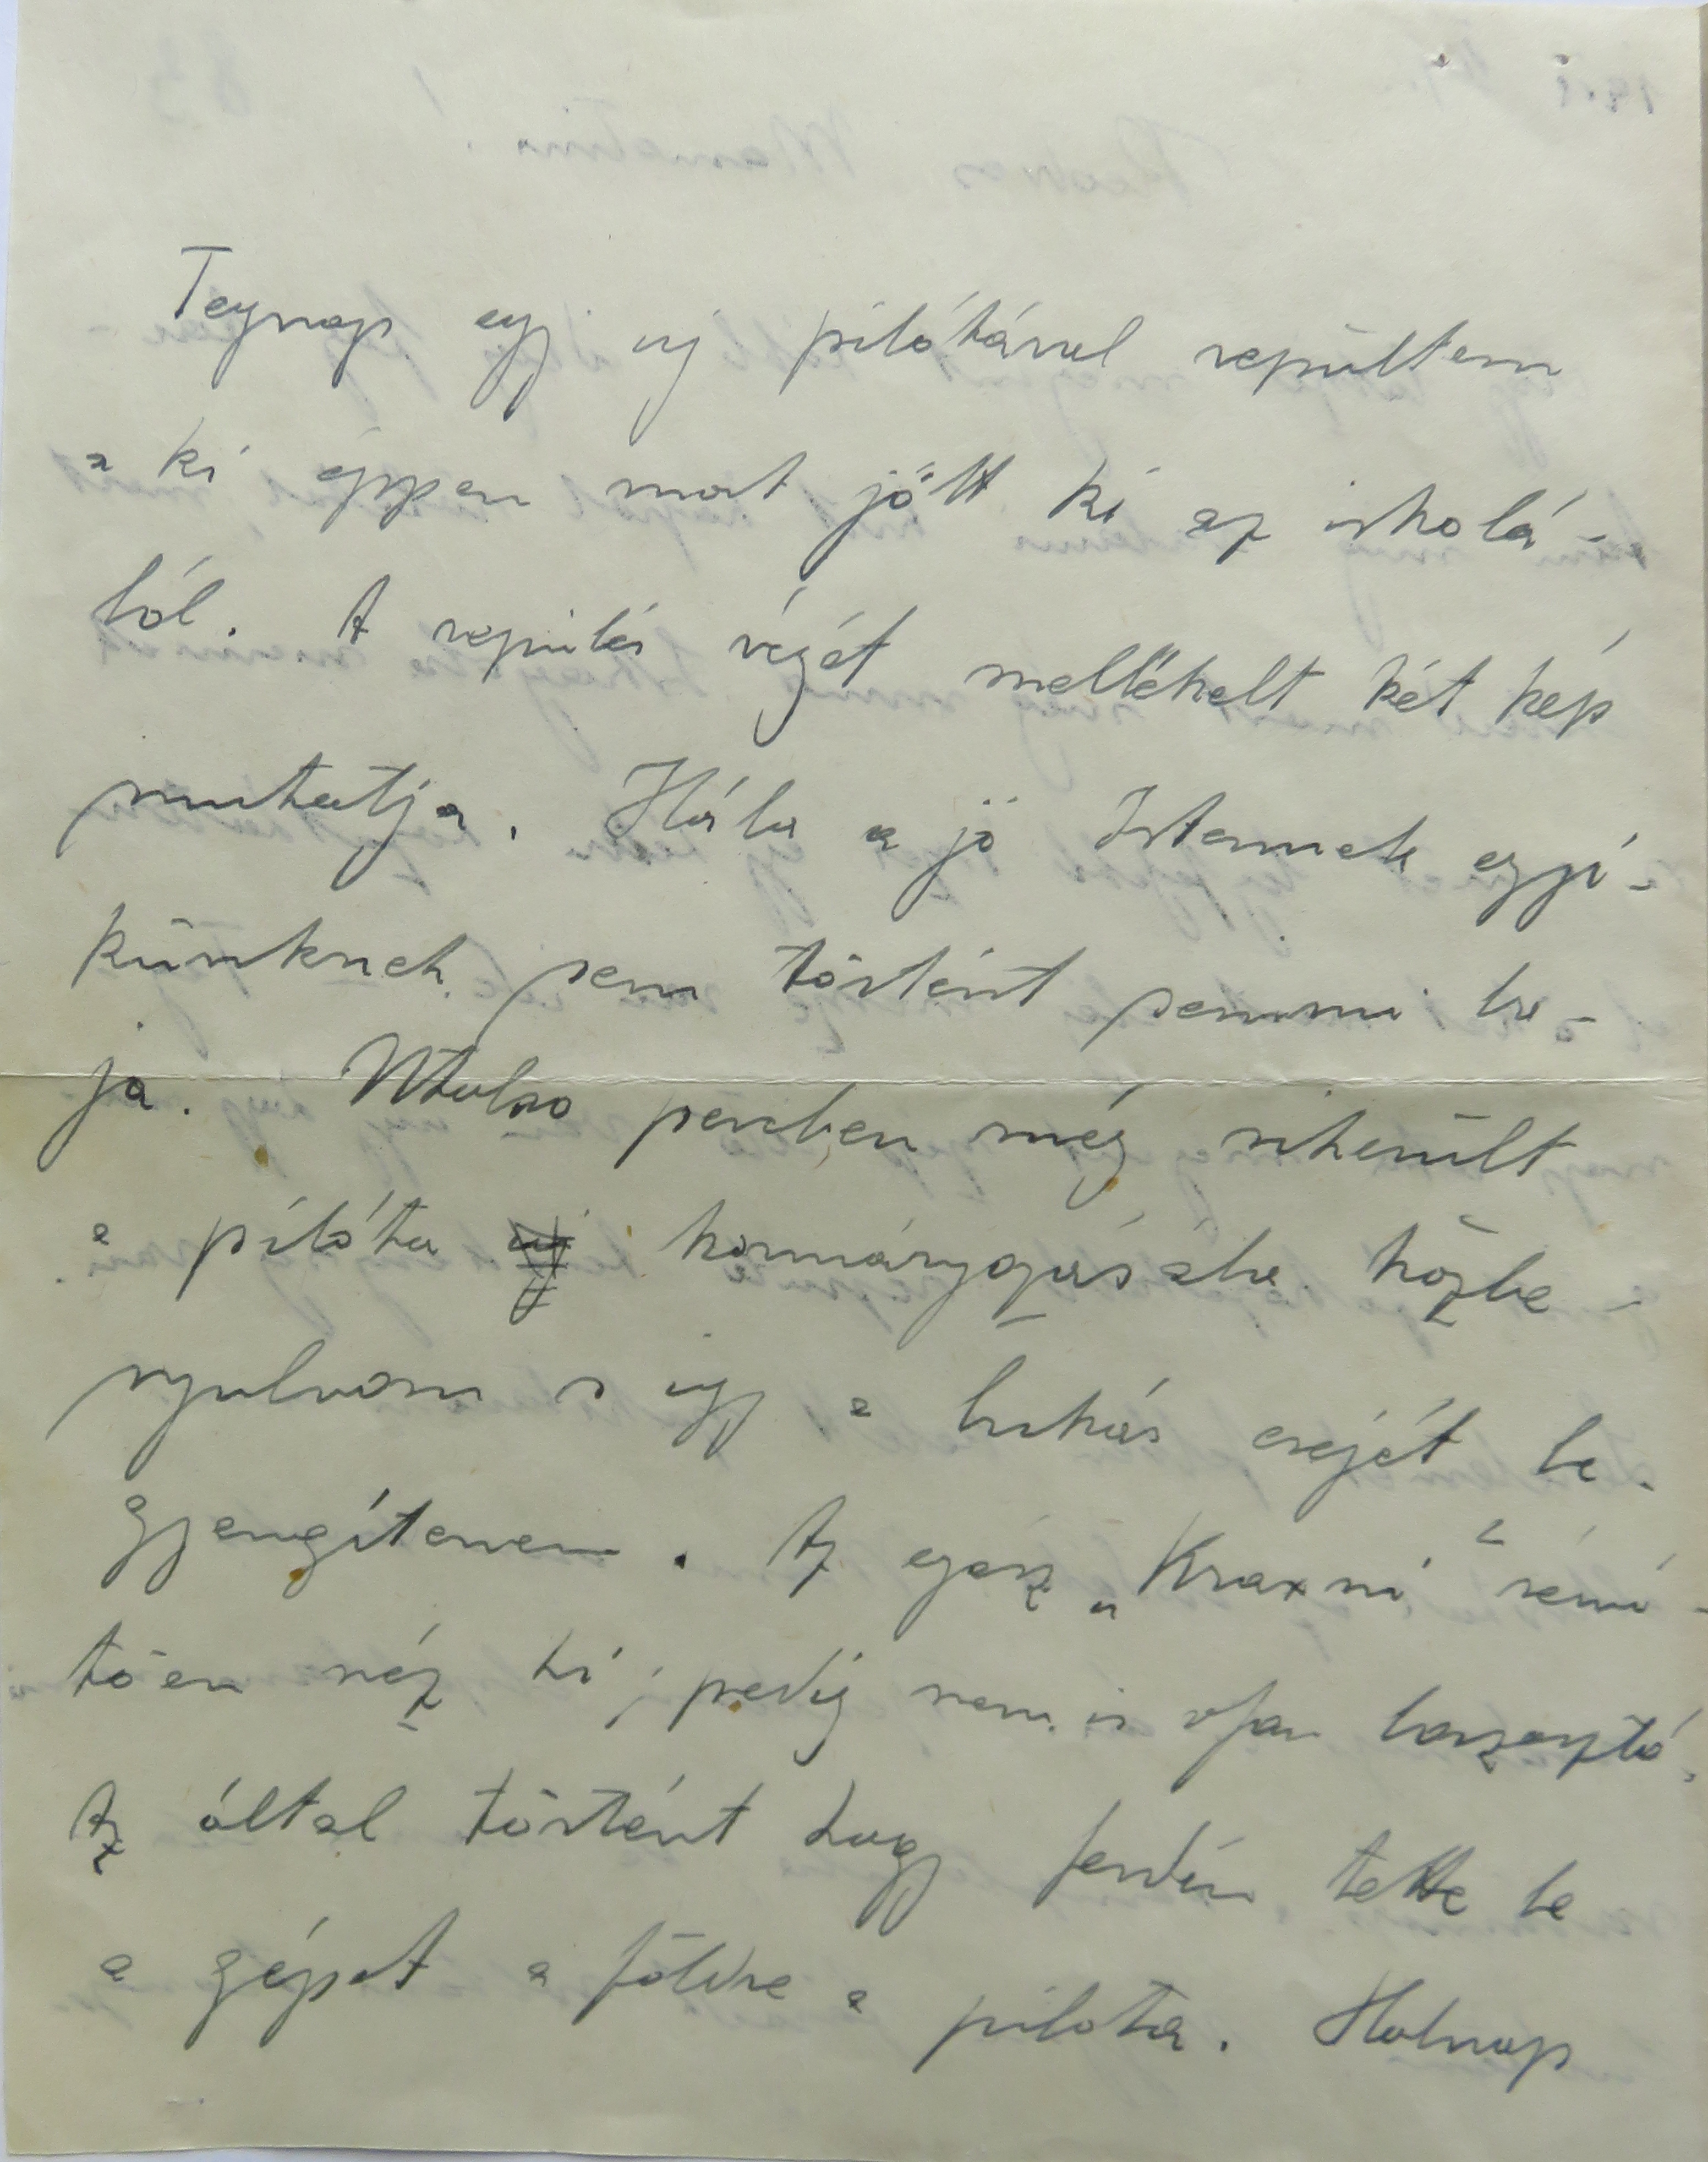 Tegnap egy uj pilótával repültem
a ki éppen most jött ki az iskolá-
ból. A repülés végét mellékelt két kép
mutatja. Hála a jó Istennek egyi-
künknek sem történt semmi ba-
ja. Utolso percben még sikerült
a pilóta kormányozásába közbe-
nyulnom s igy a bukás erejét le-
gyengítenem. Az egész „Kraxni" rémi-
tően néz ki, pedig nem is olyan borzasztó.
Az által történt hogy ferdén tette le
a gépet a földre a pilota. Holnap